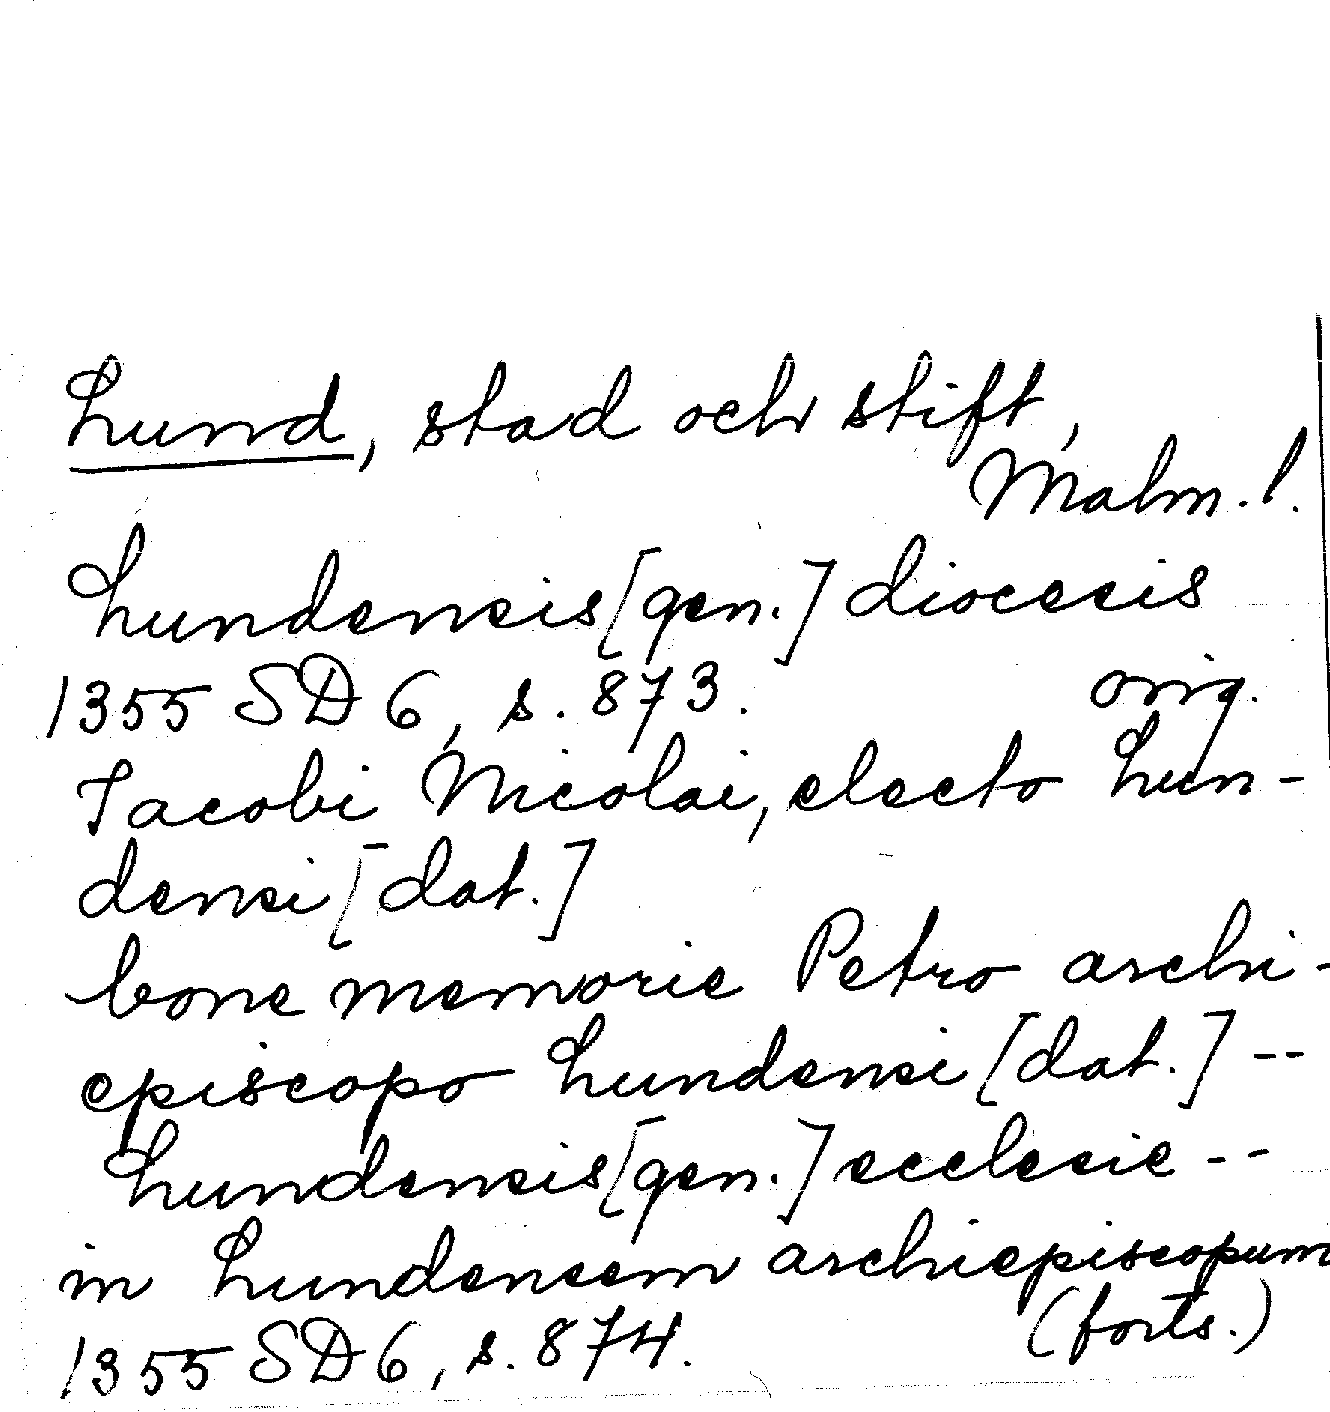 Lund, stad och stift,
Malm. l.
Lundensis [gen.] diocesis
1355 SD 6, s. 873. orig.
Jacobi Nicolai, electo Lun-
densi [dat.]
bone memorie Petro archi-
episcopo Lundensi [dat.] --
Lundensis [gen.] ecclesie --
in Lundensem archiepiscopum
1355 SD 6, s. 874. (forts.)